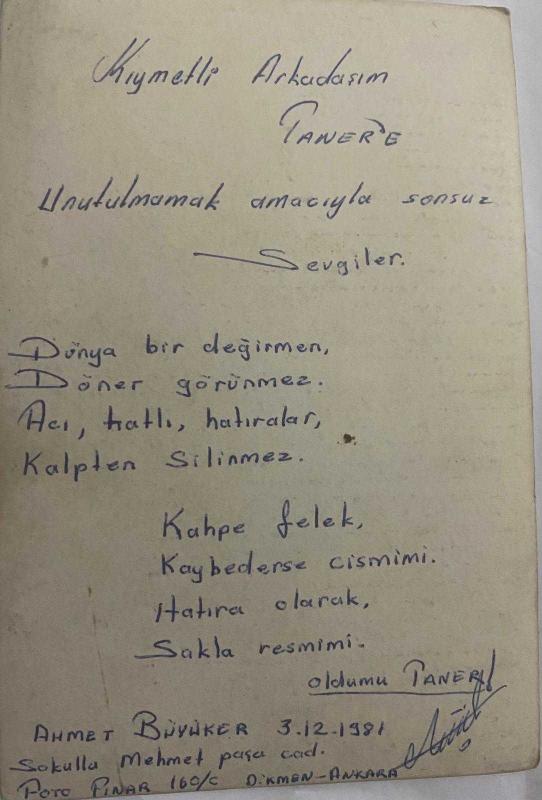 Kıymetli Arkadaşım
TANER'E
Unutulmamak amacıyla sonsuz
Sevgiler.
Dünya bir değirmen,
Döner görünmez.
Acı, tatlı, hatıralar,
Kalpten Silinmez.
Kahpe felek,
Kaybederse cismimi.
Hatıra olarak,
Sakla resmimi.
oldumu TANER!
AHMET BÜYÜKER 3.12.1981
Sokullu Mehmet paşa cad.
FOTO PINAR 160/C DİKMEN-ANKARA